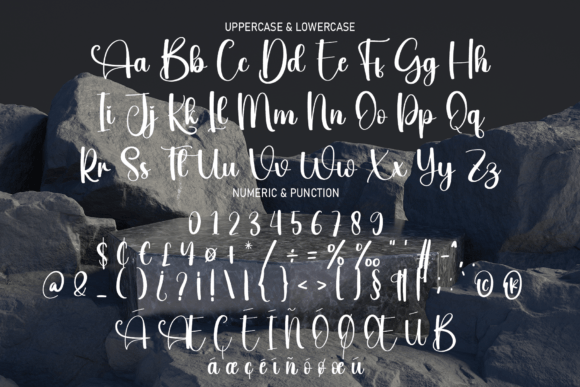 UPPERCASE & LOWERCASE
Aa Bb Cc Dd Ee Ff Gg Hh
Ii Jj Kk Ll Mm Nn Oo Pp Qq
Rr Ss Tt Uu Vv Ww Xx Yy Zz
NUMERIC & PUNCTION
0 1 2 3 4 5 6 7 8 9
$ ¢ € £ ¥ ø ı * / ÷ = % ‰ " ' # - ^
@ & _ ( ) ¿ ? ¡ ! \ | { } < > [ ] § ¶ © ®
Á Æ Ç É Í Ñ Ó Ø Œ Ú ß
á æ ç é í ñ ó ø œ ú